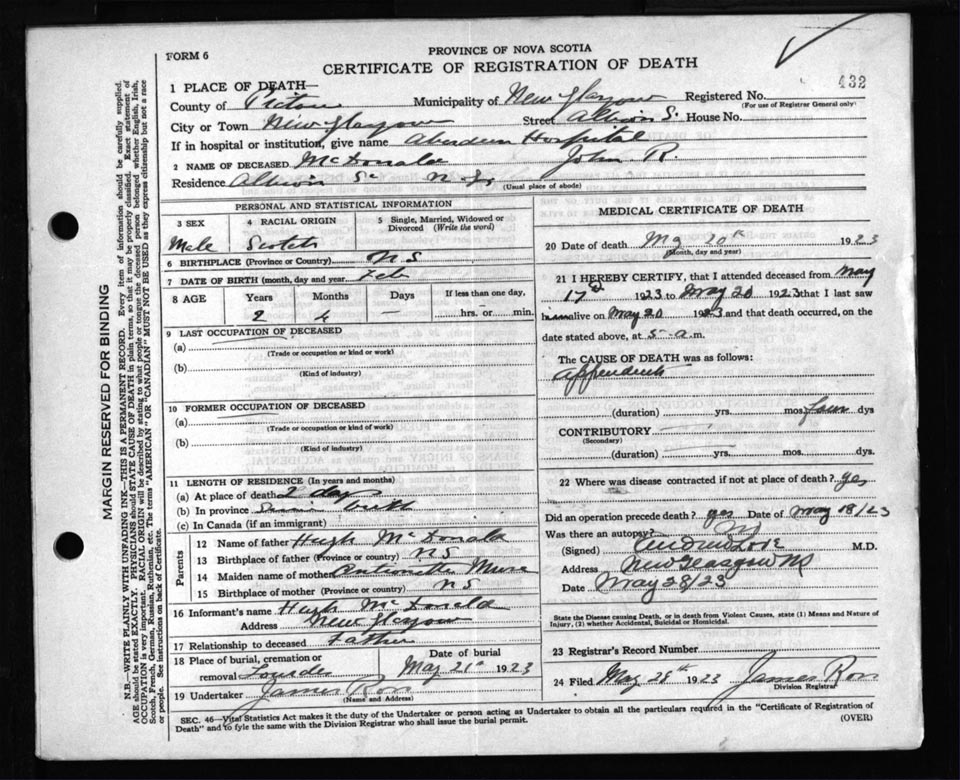 FORM 6
PROVINCE OF NOVA SCOTIA
CERTIFICATE OF REGISTRATION OF DEATH
432
1 PLACE OF DEATH—
County of Pictou Municipality of New Glasgow Registered No.
(For use of Registrar General only)
City or Town New Glasgow Street Albion S. House No.
If in hospital or institution, give name Aberdeen Hospital
2 NAME OF DECEASED McDonald John R.
Residence Albion St N. G.
(Usual place of abode)
PERSONAL AND STATISTICAL INFORMATION
3 SEX 4 RACIAL ORIGIN 5 Single, Married, Widowed or Divorced (Write the word)
Male Scotch
6 BIRTHPLACE (Province or Country) NS
7 DATE OF BIRTH (month, day and year) Feb
8 AGE Years Months Days If less than one day,
2 4 — hrs. or min.
9 LAST OCCUPATION OF DECEASED
(a)
(Trade or occupation or kind or work)
(b)
(Kind of industry)
10 FORMER OCCUPATION OF DECEASED
(a)
(Trade or occupation or kind of work)
(b)
(Kind of industry)
11 LENGTH OF RESIDENCE (In years and months)
(a) At place of death 2 days
(b) In province Since birth
(c) In Canada (if an immigrant)
Parents
12 Name of father Hugh McDonald
13 Birthplace of father (Province or country) NS
14 Maiden name of mother
15 Birthplace of mother (Province or country) NS
16 Informant's name Hugh McDonald
Address New Glasgow
17 Relationship to deceased Father
18 Place of burial, cremation or removal Lourdes Date of burial May 21st 1923
19 Undertaker James Ross
(Name and Address)
MEDICAL CERTIFICATE OF DEATH
20 Date of death My 20th 1923
(Month, day and year)
21 I HEREBY CERTIFY, that I attended deceased from May
17th 1923 to May 20 1923 that I last saw
him alive on May 20 1923 and that death occurred, on the
date stated above, at 5 a.m.
The CAUSE OF DEATH was as follows:
(duration) yrs. mos. four dys
CONTRIBUTORY
(Secondary)
(duration) yrs. mos. dys.
22 Where was disease contracted if not at place of death? yes
Did an operation precede death? yes Date of May 18/23
Was there an autopsy? No
(Signed) M.D.
Address New Glasgow NS
Date May 28/23
State the Disease causing Death, or in death from Violent Causes, state (1) Means and Nature of
Injury, (2) whether Accidental, Suicidal or Homicidal.
23 Registrar's Record Number
24 Filed May 28th 1923 James Ross
Division Registrar
SEC. 46—Vital Statistics Act makes it the duty of the Undertaker or person acting as Undertaker to obtain all the particulars required in the "Certificate of Registration of
Death" and to fyle the same with the Division Registrar who shall issue the burial permit.
(OVER)
MARGIN RESERVED FOR BINDING
N.B.—WRITE PLAINLY WITH UNFADING INK—THIS IS A PERMANENT RECORD. Every item of information should be carefully supplied.
AGE should be stated EXACTLY. PHYSICIANS should STATE CAUSE OF DEATH in plain terms, so that it may be properly classified. Exact statement of
OCCUPATION is very important. RACIAL ORIGIN will be described by stating to what people or tongue the deceased person belonged whether English, Irish,
Scotch, French, German, Russian, Ruthenian, etc. The terms "AMERICAN" OR "CANADIAN" MUST NOT BE USED as they express citizenship but not a race
or people. See instructions on back of Certificate.